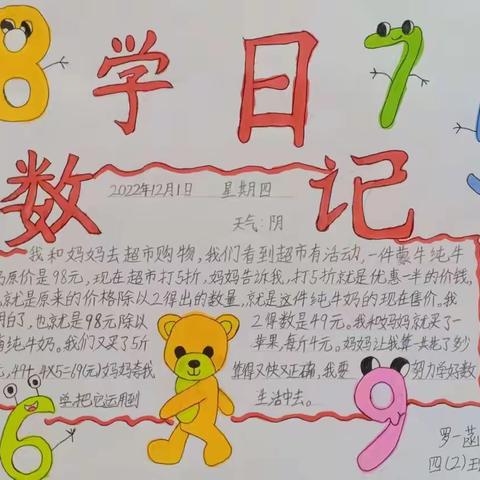 8 学 日 7
数 记
2022年12月1日 星期四
天气:阴
我和妈妈去超市购物,我们看到超市有活动,一件蒙牛纯牛
原价是98元,现在超市打5折,妈妈告诉我,打5折就是优惠一半的价钱,
就是原来的价格除以2得出的数量,就是这件纯牛奶的现在售价。我
明白了,也就是98元除以 2得数是49元。我和妈妈就买了一
纯牛奶。我们又买了5斤 苹果,每斤4元。妈妈让我算一共花了多少
49+4×5=69(元)妈妈夸我 算得又快又正确,我要 努力学好数
学,把它运用到 生活中去。
6 9
罗一菡
四(2)班